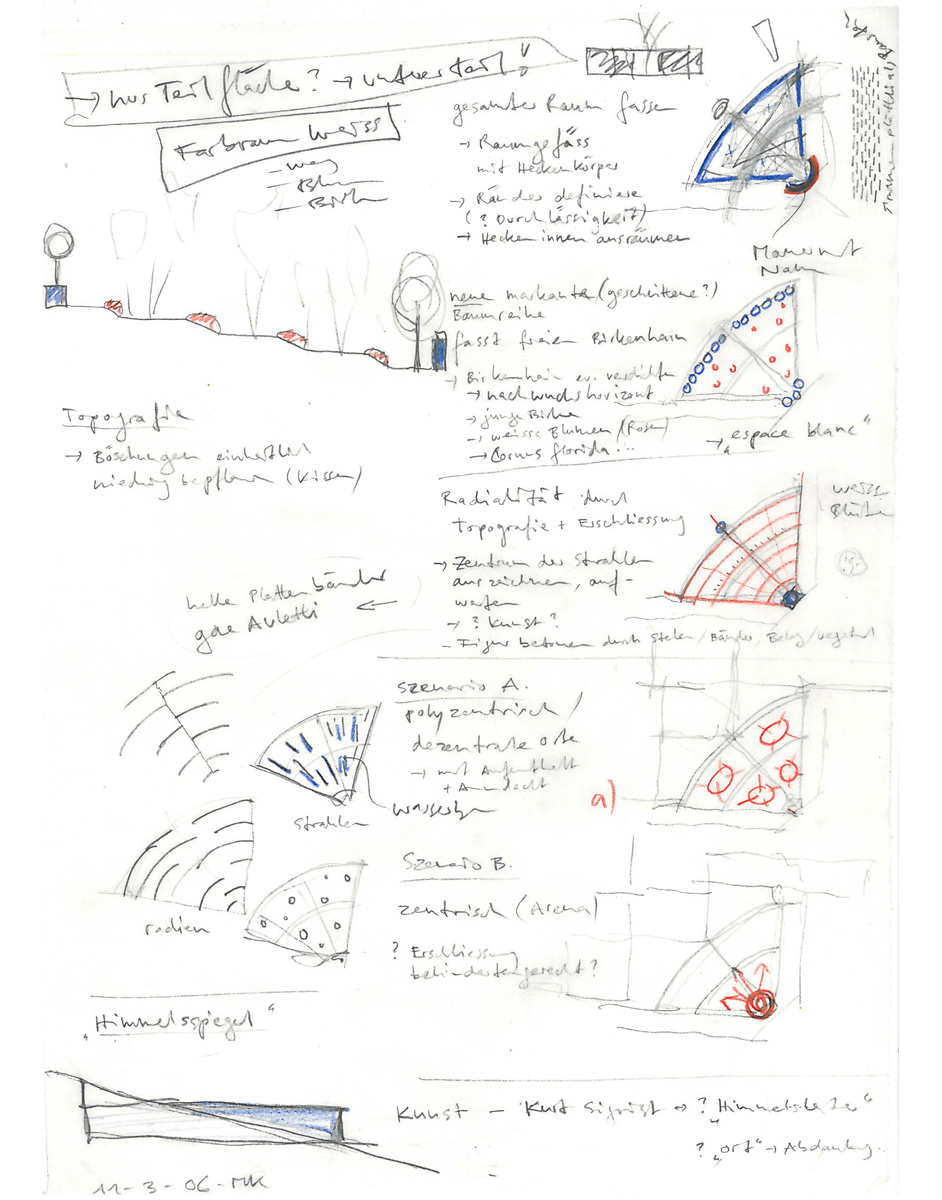 → nur Teilfläche? →
Farbraum weiss
gesamter Raum fassen
→ Raumgefäss
mit Heckenkörper
→ Ränder definiere
(? Durchlässigkeit)
→ Hecken innen ausräumen
Mauer mit
neue markante (geschnittene?)
Baumreihe
fasst freien Birkenhain
→ Birkenhain ev. verdichten
→ nachwuchshorizont
→ junge Birke
→ weisse Blumen (Rosen)
→ Cornus florida...
→ „espace blanc"
Topografie
→ Böschungen einheitlich
niedrig bepflanzt (Kissen)
Radialität durch
Topografie + Erschliessung
weiss
Blüten
→ Zentrum der Strahlen
auszeichnen, auf-
werten
→ ? Kunst?
– Figur betonen durch Stelen / Bänder, Belag / Vegetat
helle Plattenbänder
gae Auletti
Szenario A.
polyzentrisch /
dezentrale Orte
→ mit Aufenthalt
+ Andacht
a)
Strahlen
Szenario B.
zentrisch (Arena)
radien
? Erschliessung
behindertengerecht?
„Himmelsspiegel"
Kunst – Kurt Sigrist →
? „Ort" → Abdankung.
11-3-06-MK